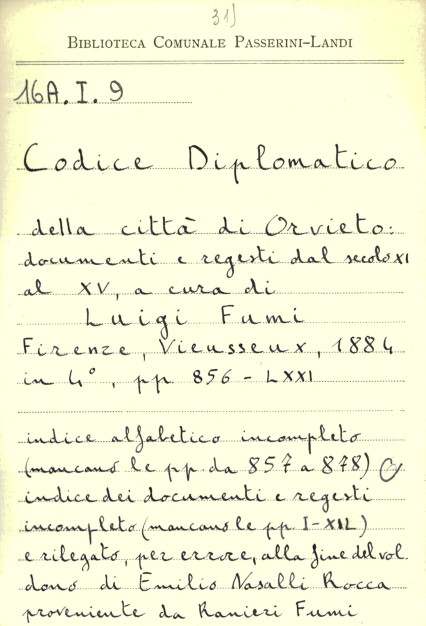 31)
BIBLIOTECA COMUNALE PASSERINI-LANDI
16A. I. 9
Codice Diplomatico
della città di Orvieto:
documenti e regesti dal secolo XI
al XV, a cura di
Luigi Fumi
Firenze, Vieusseux, 1884
in 4°, pp 856 - LXXI
indice alfabetico incompleto
(mancano le pp da 857 a 878)
indice dei documenti e regesti
incompleto (mancano le pp I-XII)
e rilegato, per errore, alla fine del vol.
dono di Emilio Nasalli Rocca
proveniente da Ranieri Fumi